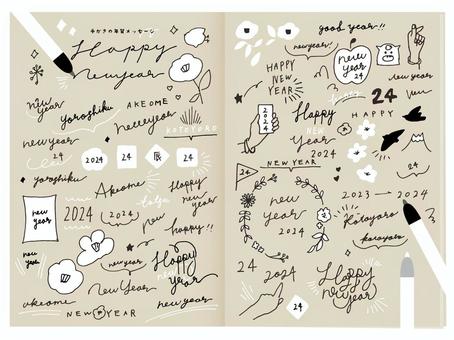 手がきの年賀メッセージ
Happy
newyear
new
year
Yoroshiku
AKEOME
newyear
Newyear
KOTOYORO
24
2024
24
辰
24
yoroshiku
Akeome
Happy
new
year
new
year
2024
2024
new
happy!!
new
year
newyear
Happy
new
year
akeome
New Year
new year
NEW YEAR
good year!!
newyear!
HAPPY
NEW
YEAR
New
Year
24
new year
24
2024
Happy
NEW
YEAR
2024
HAPPY
NEW YEAR
24
24
new
year
2024
2023 → 2024
Kotoyoro
kotoyoro
24
2024
24
Happy
new
year